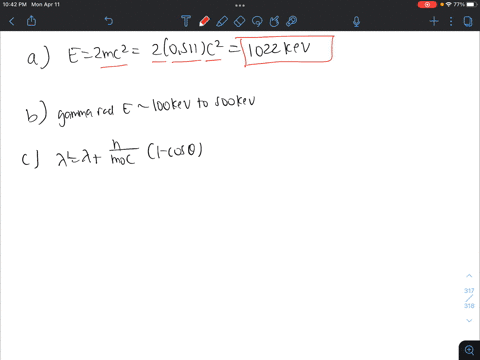 10:42 PM Mon Apr 11
77%
a) E=2mc² = 2(0,511)c² = 1022 keV
b) gamma rad E ~ 100 keV to 500 keV
c) λ' = λ + h/m₀c (1-cosθ)
317
/
318